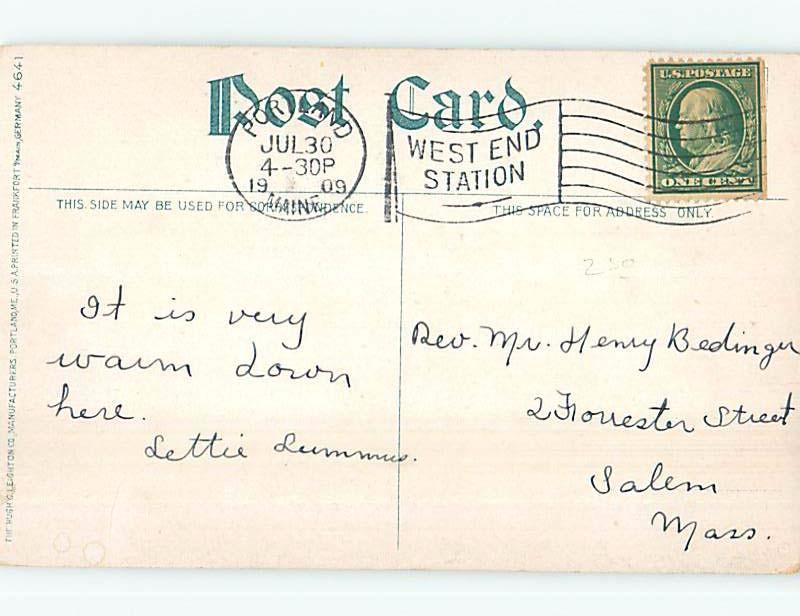 Post Card.
U.S. POSTAGE
ONE CENT
PORTLAND
JUL 30
4-30P
19 09
WEST END
STATION
THIS SIDE MAY BE USED FOR CORRESPONDENCE.
THIS SPACE FOR ADDRESS ONLY.
THE HUGH C. LEIGHTON CO., MANUFACTURERS, PORTLAND, ME., U.S.A. PRINTED IN FRANKFORT GERMANY 4641
250
It is very
warm down
here.
Lettie Lummus.
Rev. Mr. Henry Bedinger
2 Forrester Street
Salem
Mass.